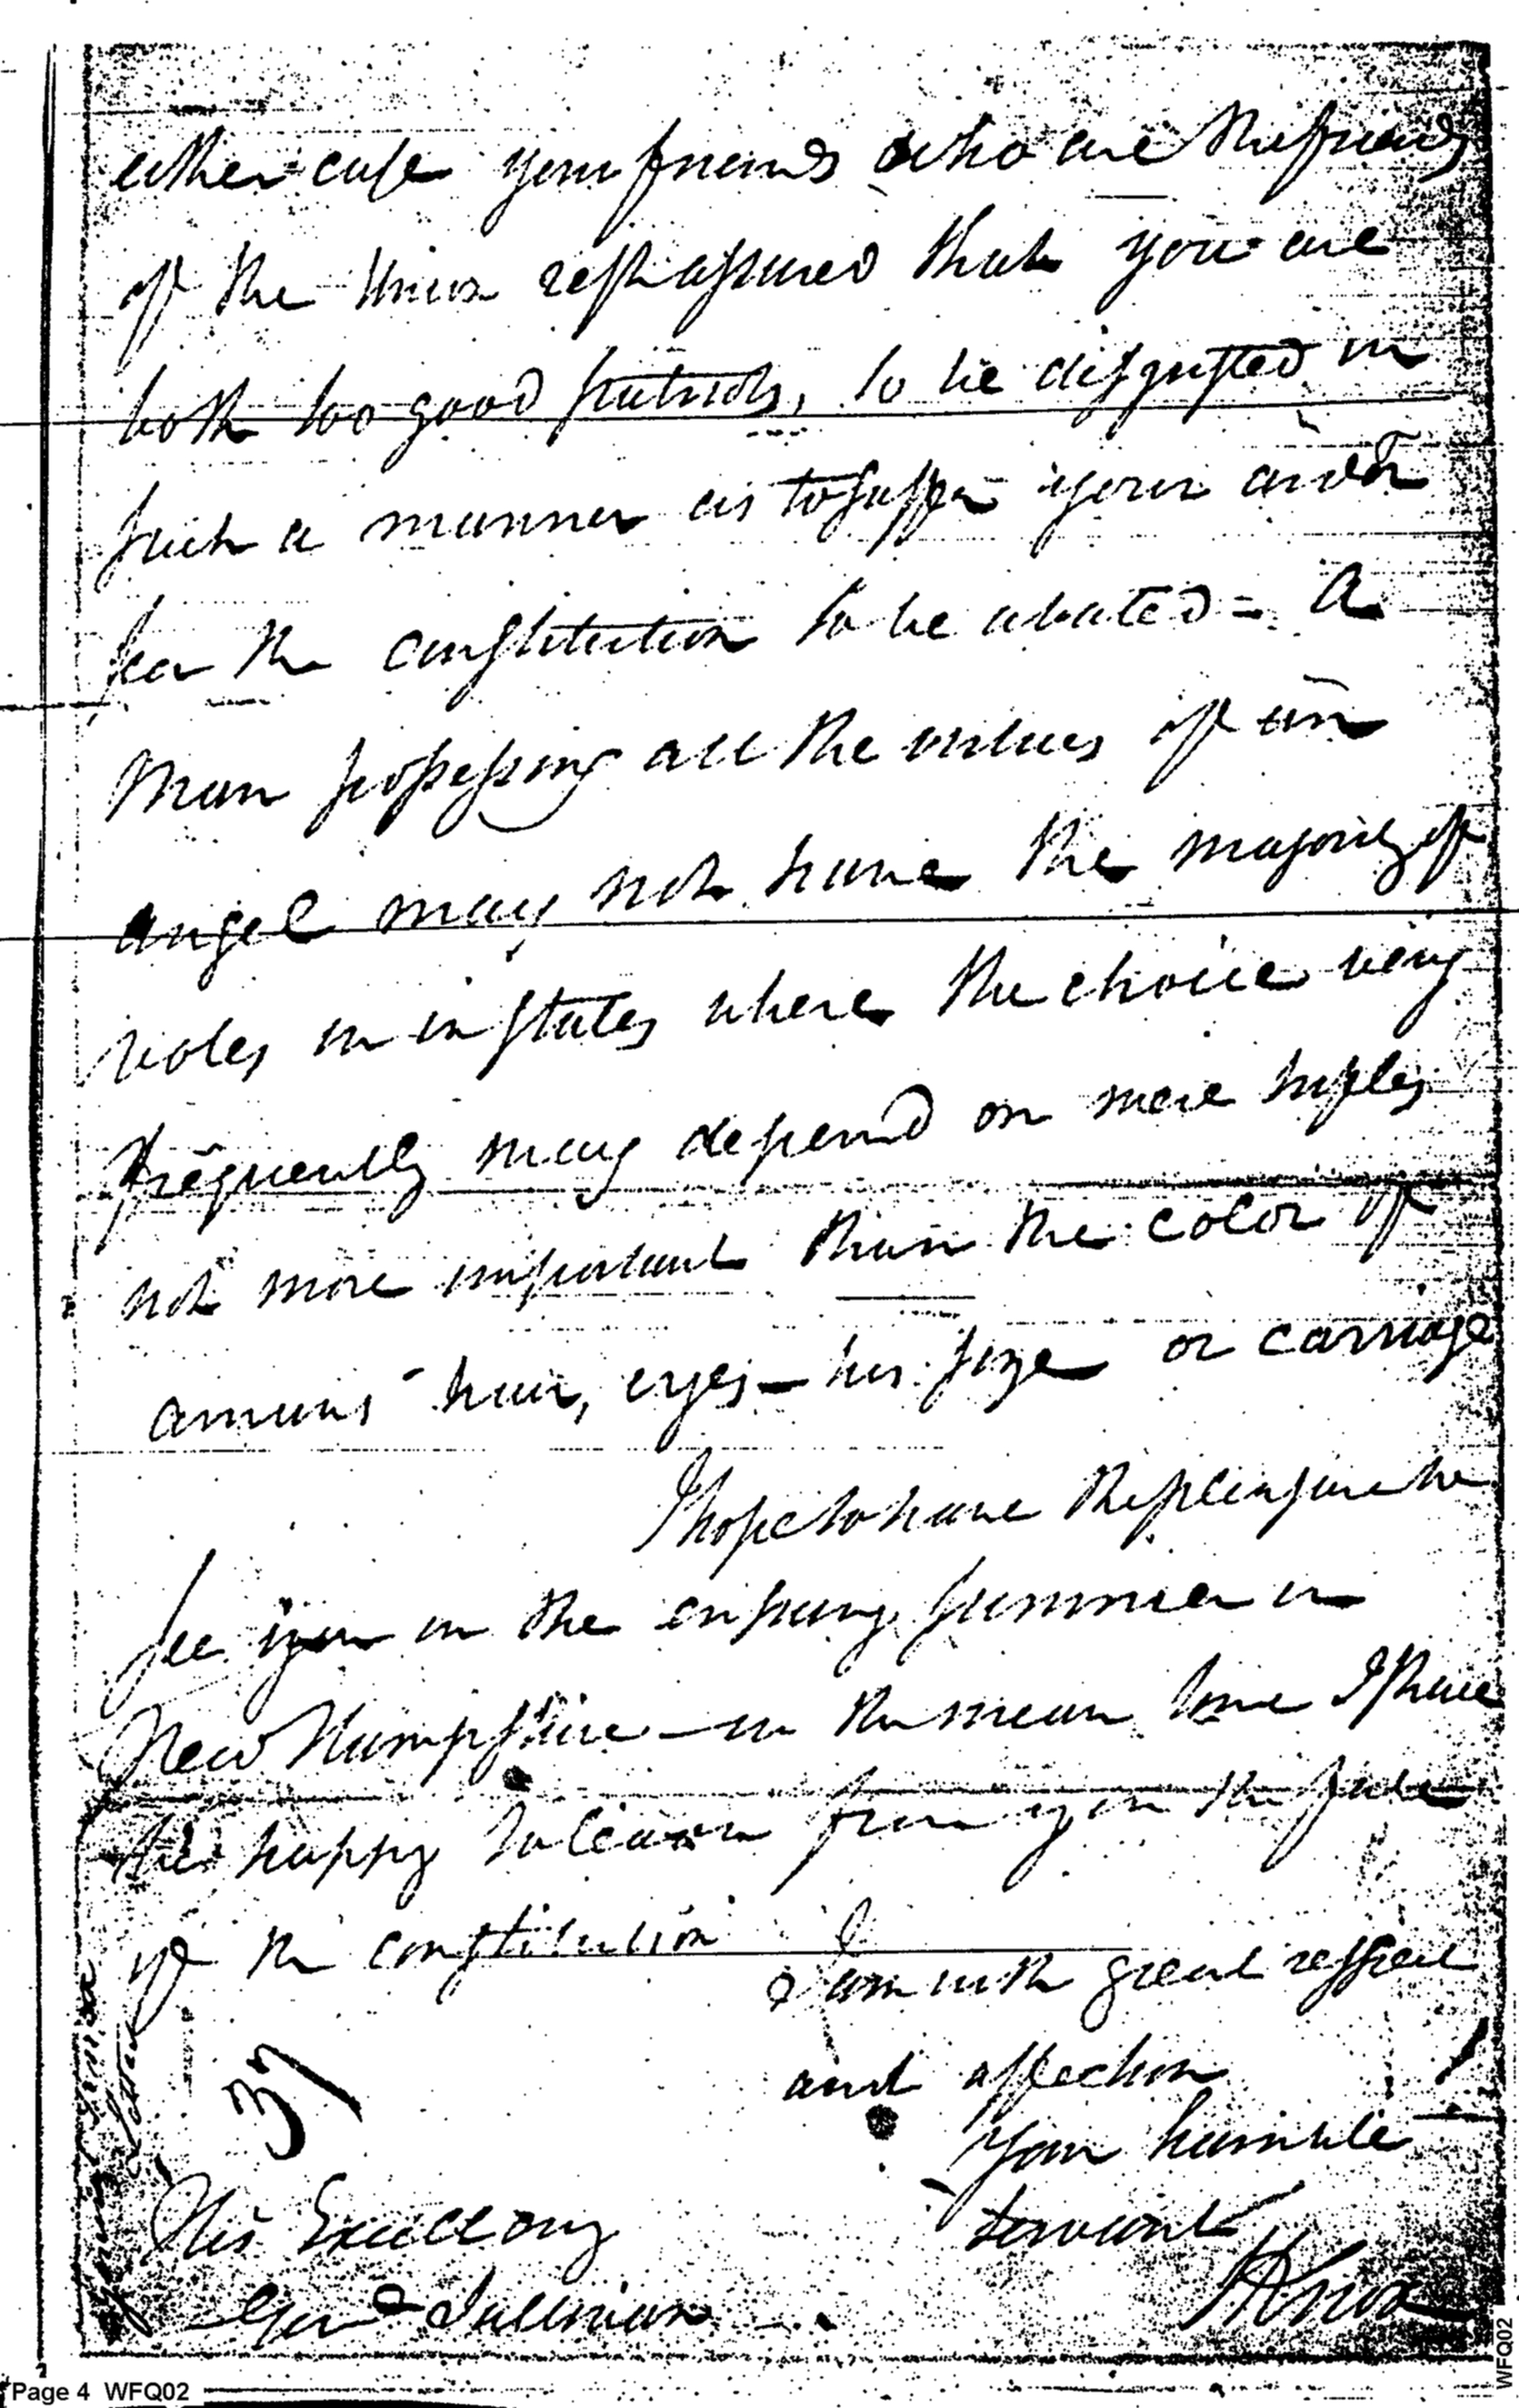 either case your friends who are the friends
of the Union rest assured that you are
both too good patriots, to be disgusted in
such a manner as to suffer your ardor
for the constitution to be abated = A
Man possessing all the virtues of an
angel may not have the majority of
votes in in states where the choice being
frequently may depend on mere trifles
not more important than the color of
a mans hair, eyes — his size or carriage
I hope to have the pleasure to
see you in the ensuing summer in
New Hampshire — in the mean time I shall
be happy to learn from you the fate
of the constitution
I am with great respect
and affection
Your humble
servant
HKnox
37
His Excellency
Genl Sullivan
Page 4 WFQ02
WFQ02